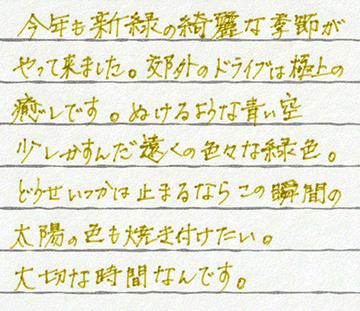 今年も新緑の綺麗な季節が
やって来ました。郊外のドライブは極上の
癒しです。ぬけるような青い空
少しかすんだ遠くの色々な緑色。
どうせいつかは止まるならこの瞬間の
太陽の色も焼き付けたい。
大切な時間なんです。